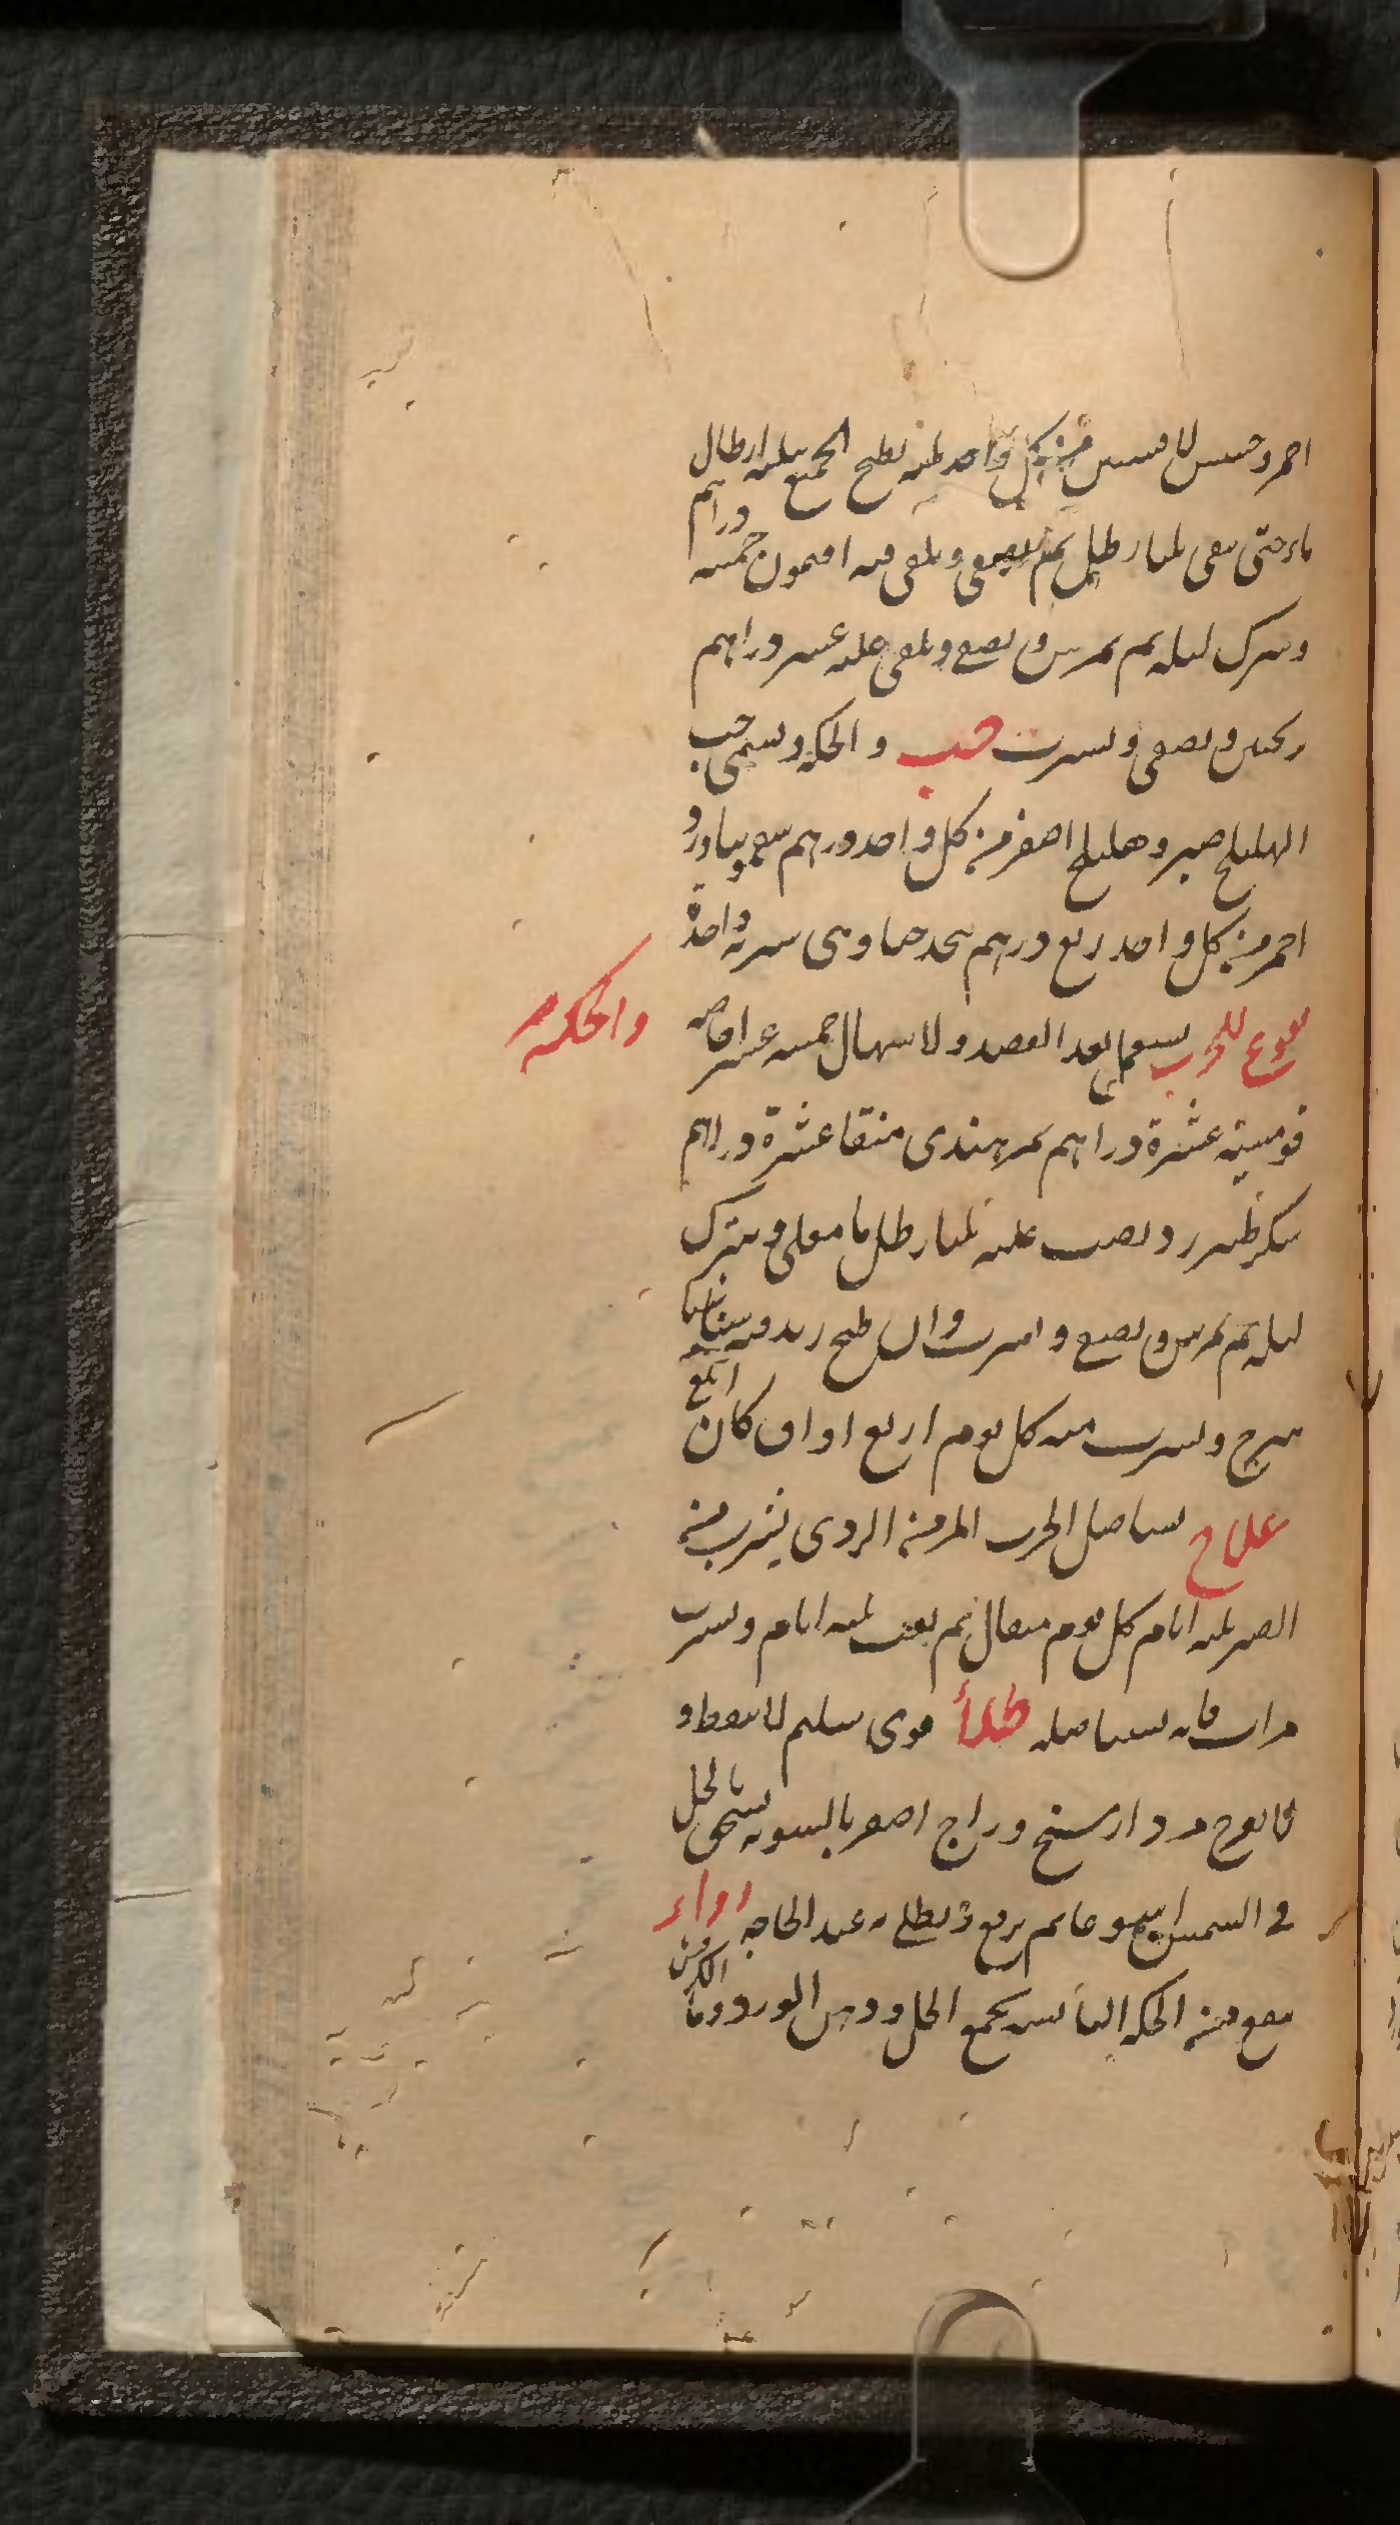 احمر وحسس لا فسسں من كل واحد ثلثه يطبخ الجميع بثلثه ارطال
ماء حتى يبقى ثلثا رطل ثم يصفى ويلقى فيه افتيمون خمسه دراهم
ويترك ليله ثم يمرس ويصفى ويلقى عليه عشر دراهم
ترنجبين ويصفى ويشرب حب والحكه ويسمى حب
الهليلج صبر وهليلج اصفر من كل واحد درهم سقمونيا وورد
احمر من كل واحد ربع درهم يتخذ حبا وهى شربة واحدة
نقوع للجرب والحكه يستعمل بعد الفصد والاسهال خمسه عشر اجاصه
قومسيه عشرة دراهم تمر هندى منقا عشرة دراهم
سكر طبرزد يصب عليه ثلثا رطل ما مغلى ويترك
ليله ثم يمرس ويصفى ويشرب وان طبخ زيد فيه
شيرج ويشرب منه كل يوم اربع اواق كان ابلغ
علاج يستاصل الجرب المزمنه الردى يشرب من
الصبر ثلثه ايام كل يوم مثقال ثم يغب ثلثه ايام ويشرب
مرات فانه يستاصله طلأ قوى سليم لا ينفط و
لا يقرح مردارسنج وزاج اصفر بالسويه يسحق بالخل
فى الشمس اسبوعا ثم يرفع ويطلى به عند الحاجه دواء
ينفع من الحكه اليابسه يجمع الخل ودهن الورد وماء الكرفس